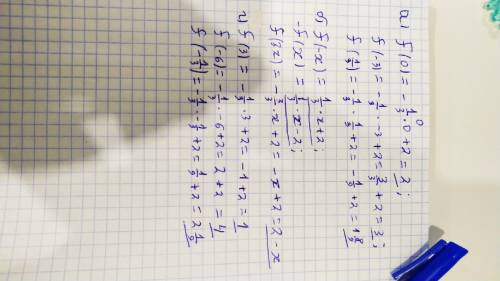 а) f(0) = -1/3 · 0 + 2 = 2;
f(-3) = -1/3 · -3 + 2 = 3/3 + 2 = 3;
f(1/3) = -1/3 · 1/3 + 2 = -1/9 + 2 = 1 8/9
б) f(-x) = 1/3 · x + 2;
-f(x) = 1/3 · x - 2;
f(3x) = -3/3 · x + 2 = -x + 2 = 2 - x
в) f(3) = -1/3 · 3 + 2 = -1 + 2 = 1
f(-6) = -1/3 · -6 + 2 = 2 + 2 = 4
f(-1/3) = -1/3 · -1/3 + 2 = 1/9 + 2 = 2 1/9